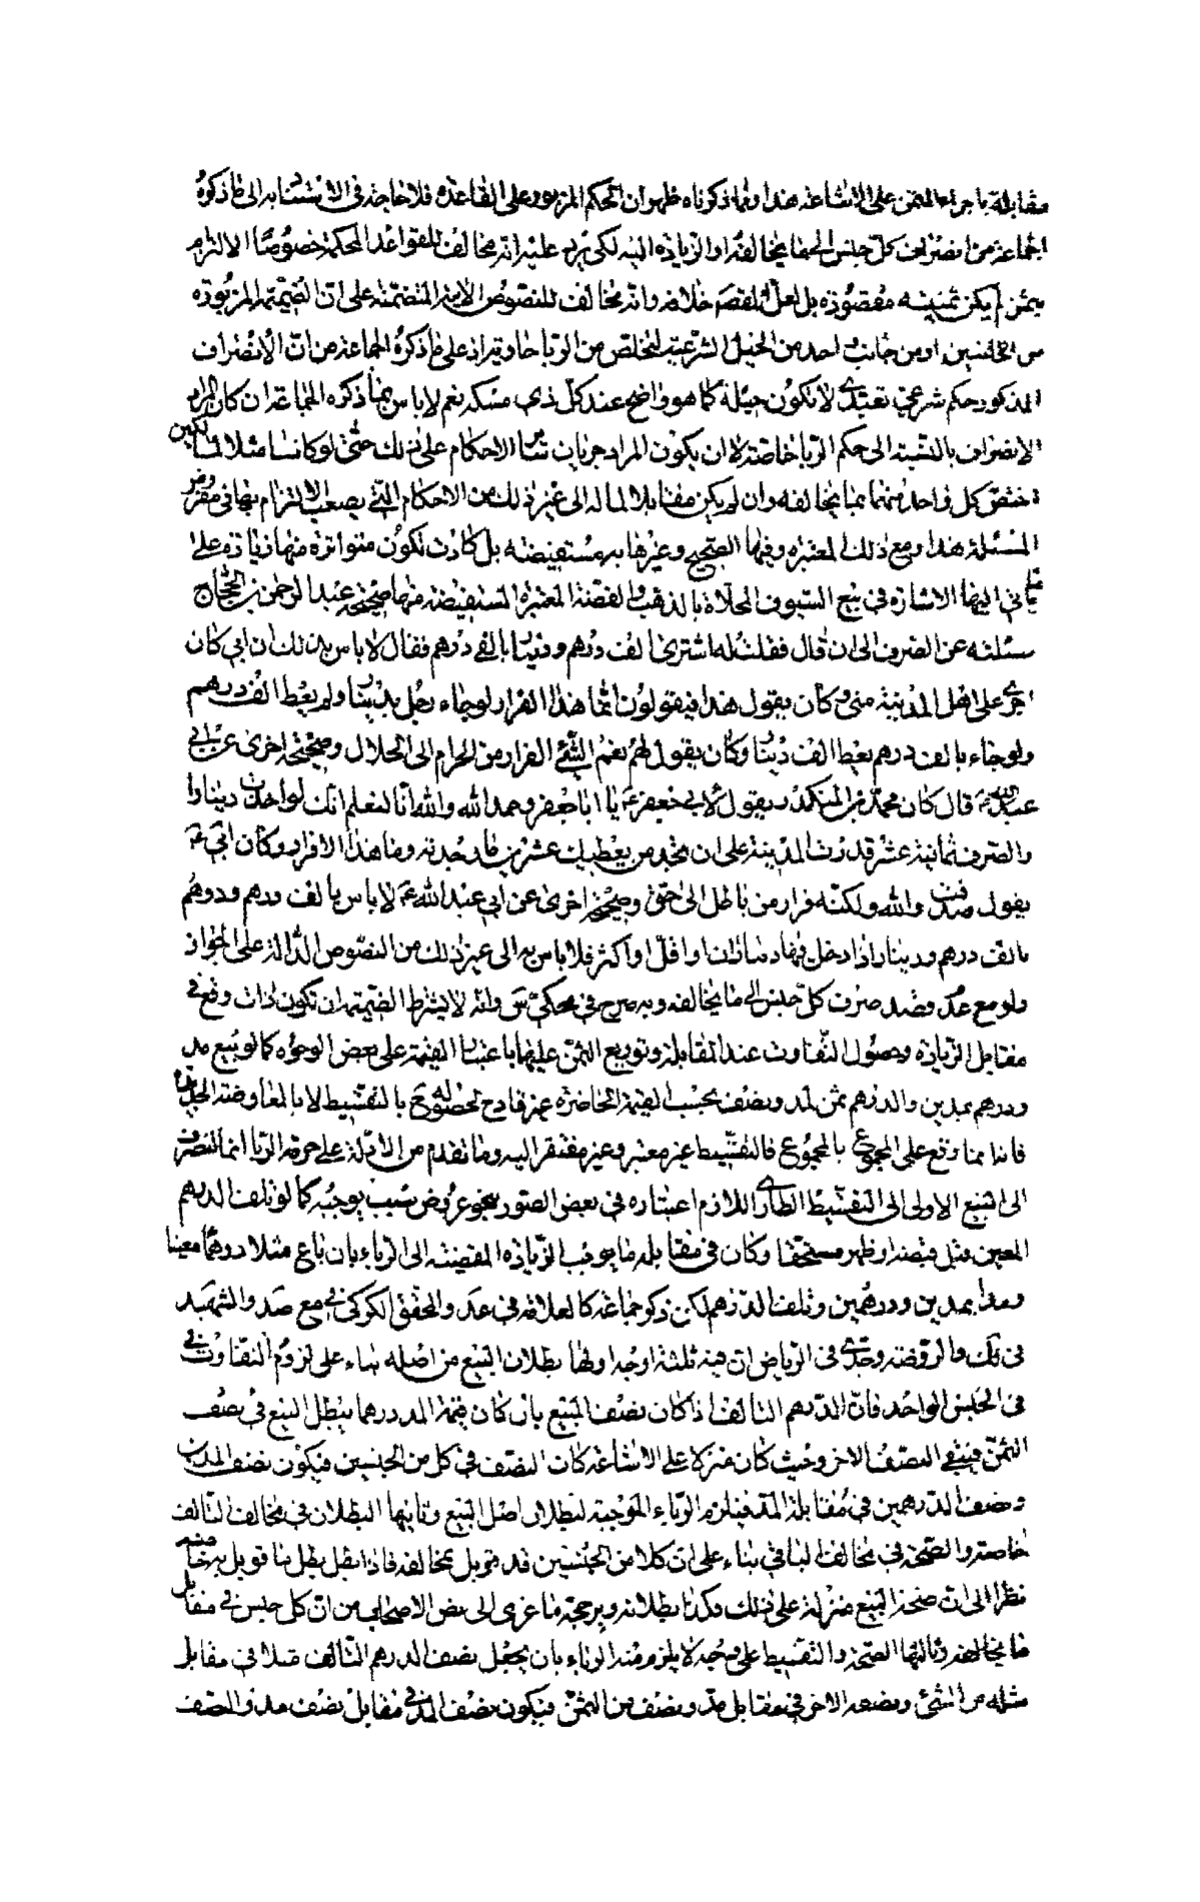 مقابلة باجزاء الثمن على الاشاعة هذا ومما ذكرناه ظهر ان الحكم المزبور على القاعدة فلا حاجة فى الاستناد به الى ما ذكره
جماعة من انصراف كل جنس الى ما يخالفه او الزيادة اليه لكى يرد عليه انه مخالف للقواعد المحكمة خصوصا الالتزام
بثمن لم يكن ثمنيته مقصودة بل لعل القصد خلافه وانه مخالف للنصوص الآتية المتضمنة على ان الضميمة المزبورة
من الجانبين او من جانب احد من الحيل الشرعية للتخلص من الربا حاويراد على ما ذكره الجماعة من ان الانصراف
المذكور حكم شرعى تعبدى لا تكون حيلة كما هو واضح عند كل ذى مسكة نعم لا باس بما ذكره الجماعة ان كان المراد
الانصراف بالنسبة الى حكم الربا خاصة لا ان يكون المراد جريان سائر الاحكام على ذلك حتى لو كانا مثلا لمالكين
اختص كل واحد منهما بما يخالفه وان لم يكن مقابلا لماله الى غير ذلك من الاحكام التى يصعب الالتزام بها فى مفروض
المسئلة هذا ومع ذلك المعتبرة وفيها الصحيح وغيرها به مستفيضة بل كادت تكون متواترة منها زيادة على
ما يأتى اليها الاشارة فى بيع السيوف المحلاة بالذهب والفضة المعتبرة المستفيضة منها صحيحة عبد الرحمن بن الحجاج
سئلته عن الصرف الى ان قال فقلت له اشترى الف درهم ودينارا بالفى درهم فقال لا باس بذلك ان ابى كان
اجرى على اهل المدينة منى وكان يقول هذا فيقولون انما هذا الفرار لو جاء رجل بدينار لم يعط الف درهم
ولو جاء بالف درهم لم يعط الف دينار وكان يقول لهم نعم الشئ الفرار من الحرام الى الحلال وصحيحة اخرى عن ابى
عبد الله ع قال كان محمد بن المنكدر يقول لابى جعفر ع يا ابا جعفر رحمك الله والله انا لنعلم انك لو اخذت دينارا
والصرف ثمانية عشر فدرت المدينة على ان تجد من يعطيك عشرين ما وجدته وما هذا الا فرار وكان ابى ع
يقول صدقت والله ولكنه فرار من باطل الى حق وصحيحة اخرى عن ابى عبد الله ع لا باس بالف درهم ودرهم
بالف درهم ودينار اذا دخل فيها ديناران او اقل او اكثر فلا باس به الى غير ذلك من النصوص الدالة على الجواز
ولو مع عدم قصد صرف كل جنس الى ما يخالفه وبه صرح فى محكى س وانه لا يشترط الضميمة ان تكون ذات وقع فى
مقابل الزيادة وحصول التفاوت عند المقابلة وتوزيع الثمن عليهما باعتبار القيمة على بعض الوجوه كما لو بيع مد
ودرهم بمدين والدرهم ثمن لمد ونصف بحسب القيمة الحاضرة غير قادح لحصوله ح بالتقسيط لا بالمعاوضة الجارية
فانها مما وقع على المجموع بالمجموع فالتقسيط غير معتبر وغير مفتقر اليه وما تقدم من الادلة على حرمة الربا انما انصرف
الى البيع الاولى الى التقسيط الطارى اللازم اعتباره فى بعض الصور بنحو عروض سبب يوجبه كما لو تلف الدرهم
المعين مثل قبضه او ظهر مستحقا وكان فى مقابله ما يوجب الزيادة المفضية الى الرباء بان باع مثلا درهما معينا
ومدا بمدين ودرهمين وتلف الدرهم لكن ذكر جماعة كالعلامة فى عد والمحقق الكركى فى مع صد والشهيد
فى لك والروضة وجدى فى الرياض ان فيه ثلثة اوجه اولها بطلان البيع من اصله بناء على لزوم التفاوت فى
فى الجنس الواحد فان الدرهم التالف اذا كان نصف المبيع بان كان قيمة المد درهما يبطل البيع فى نصف
الثمن فيبقى النصف الاخر وحيث كان منزلا على الاشاعة كان النصف فى كل من الجنسين فيكون نصف المدين
ونصف الدرهمين فى مقابلة المد فيلزم الرباء الموجبة لبطلان اصل البيع وثانيها البطلان فى مخالف التالف
خاصة والصحة فى مخالف الباقى بناء على ان كلا من الجنسين قد قوبل بمخالفه فاذا بطل بطل ما قوبل به خاصة
نظرا الى ان صحة البيع منزلة على ذلك وكذا بطلانه ويرجحه ما عزى الى بعض الاصحاب من ان كل جنس فى مقابل
ما يخالفه وثالثها الصحة والتقسيط على وجه لا يلزم منه الرباء بان يجعل نصف الدرهم التالف مثلا فى مقابل
مثله من الشئ ونصفه الاخر فى مقابل مد ونصف من الثمن فيكون نصف المد فى مقابل نصف مد والنصف